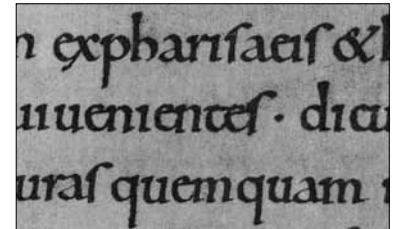 n expharisaeis & h
ui uenientes · dicu
uras quemquam